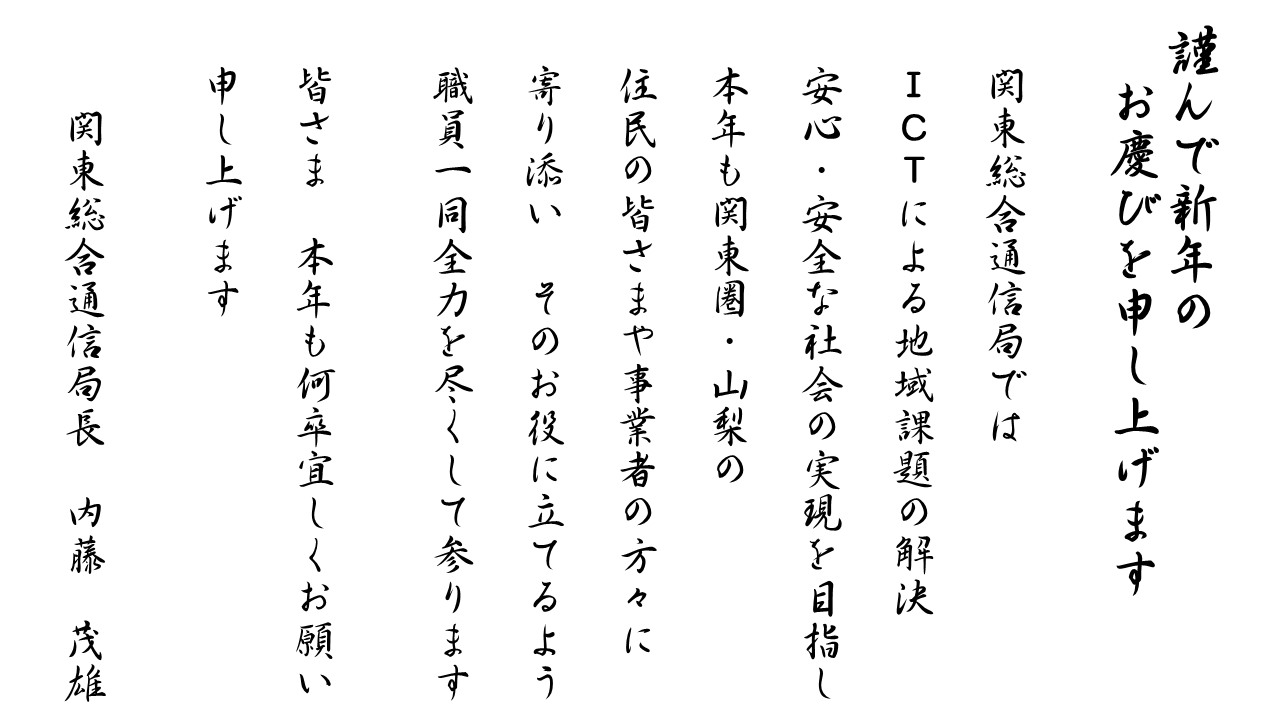 謹んで新年の
お慶びを申し上げます
関東総合通信局では
ＩＣＴによる地域課題の解決
安心・安全な社会の実現を目指し
本年も関東圏・山梨の
住民の皆さまや事業者の方々に
寄り添い　そのお役に立てるよう
職員一同全力を尽くして参ります
皆さま　本年も何卒宜しくお願い
申し上げます
関東総合通信局長　内藤　茂雄